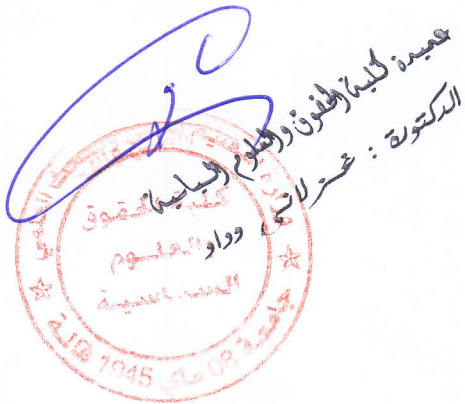 عميدة كلية الحقوق والعلوم السياسية
الدكتورة : وداد
كلية الحقوق
والعلوم
السياسية
جامعة 08 ماي 1945 قالمة